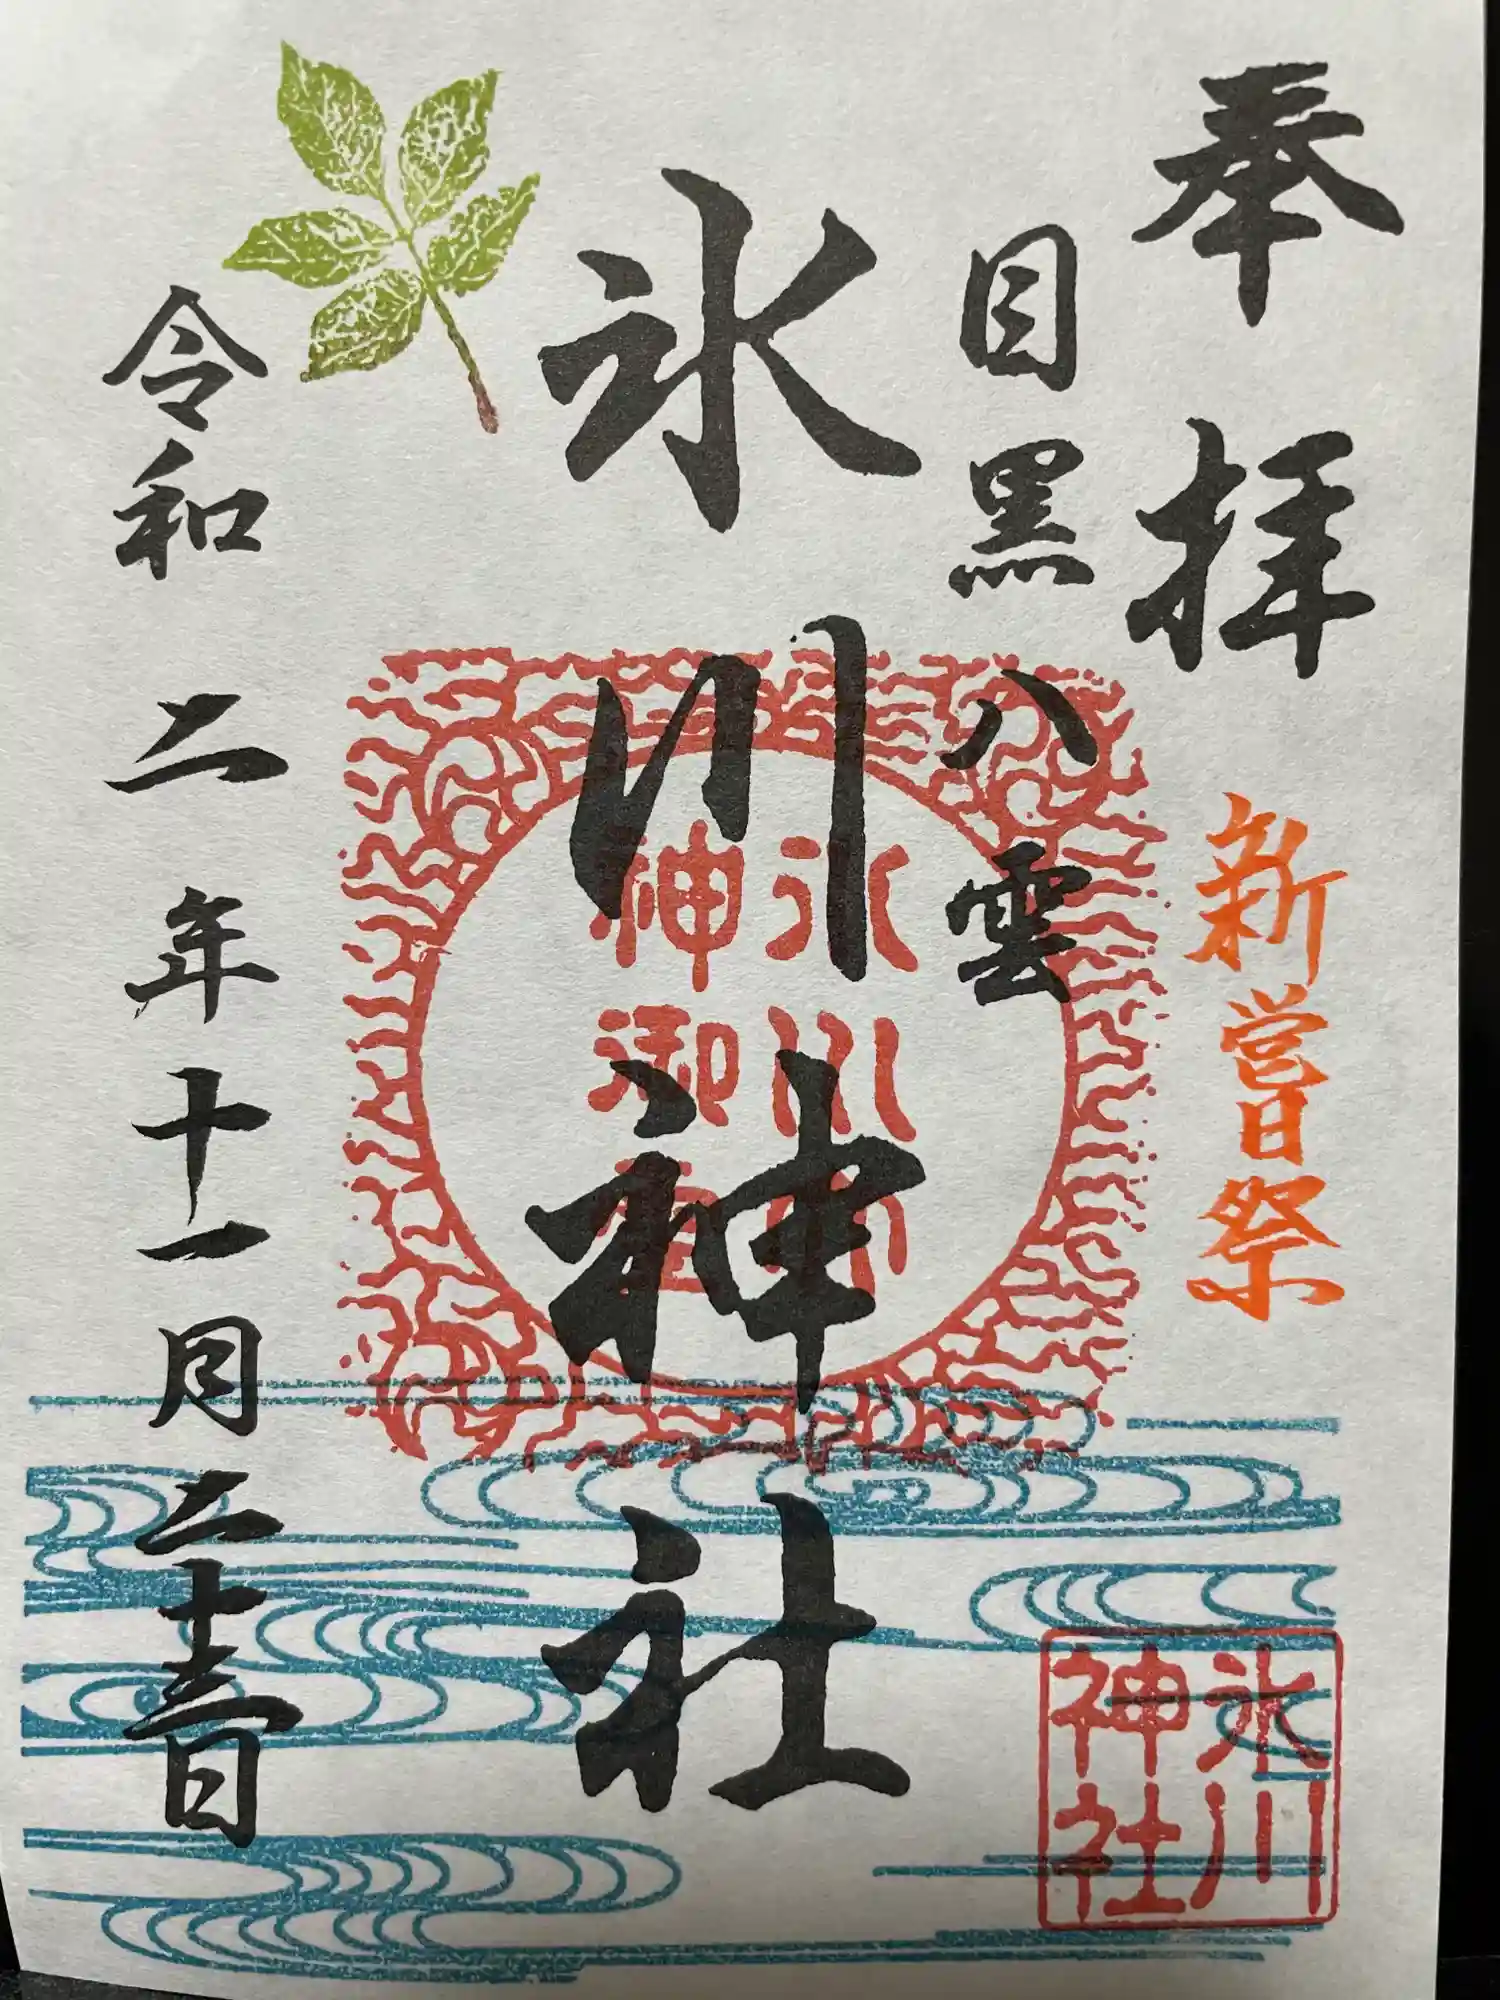 奉拝
新嘗祭
目黒八雲
氷川神社
令和二年十一月二十三日
氷川
神御
氷川
神社